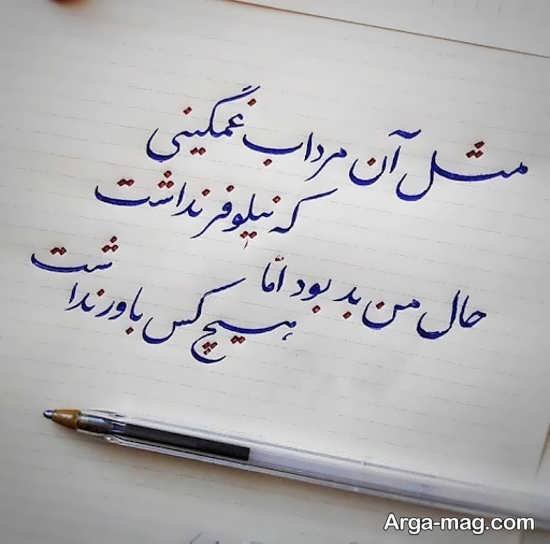 مثل آن مرداب غمگینی
که نیلوفر نداشت
حال من بد بود امّا
هیچ کس باور نداشت
Arga-mag.com